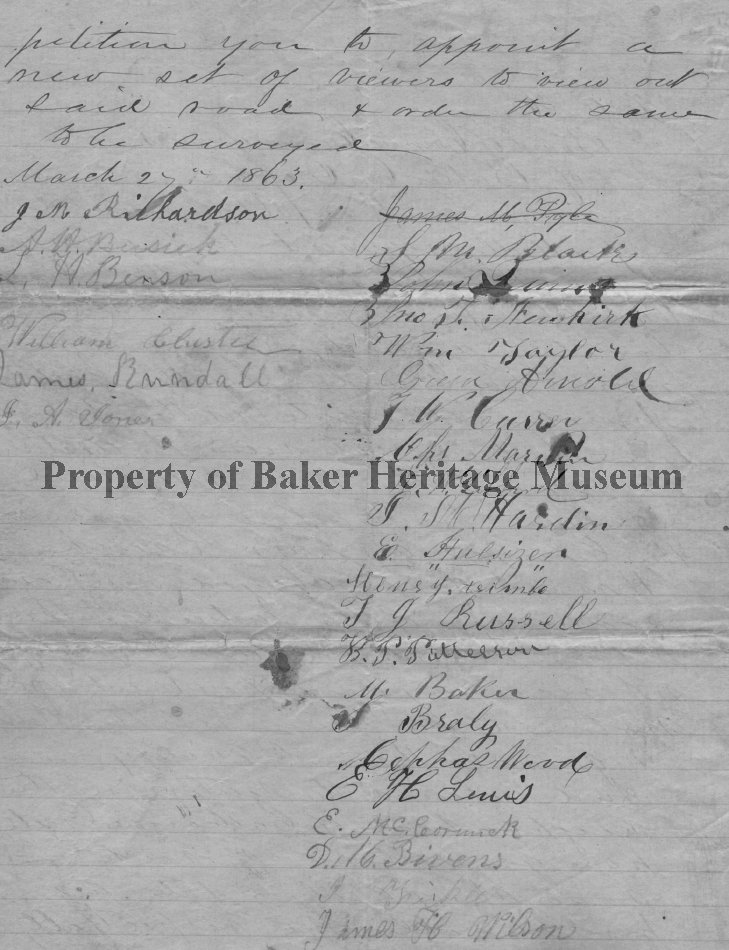 petition you to appoint a
new set of viewers to view out
said road & order the same
to be surveyed
March 27th 1863.
J M Richardson
A. H. Busick
L. H. Benson
William
James Rundall
F. A. Toner
James M. Pyle
M. Black
John Ewing
Jno. T. Newkirk
Wm Taylor
Green Arnold
T. W. Carrer
Property of Baker Heritage Museum
Hardin
E. Hulsizer
Henry
T J Russell
B. F. Patterson
M. Baker
Braly
Cephas Wood
E H Lewis
E. McCormick
D. H. Bivens
James H Wilson